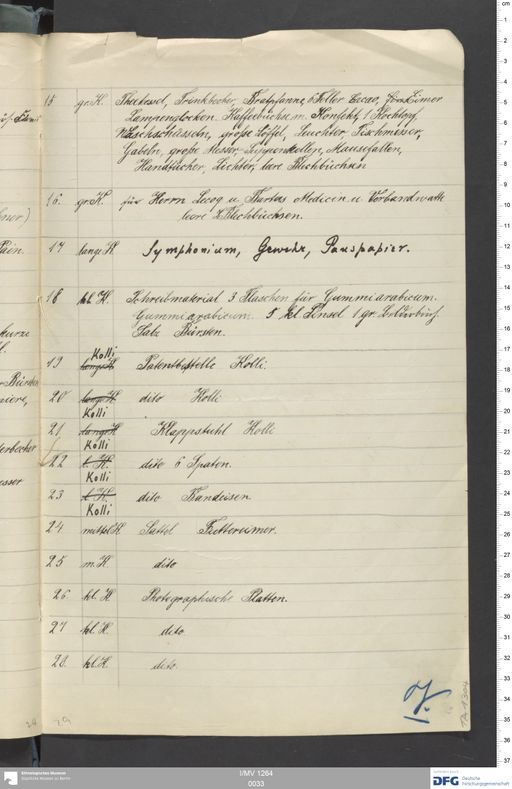 15 gr. K. Theekessel, Trinkbecher, Bratpfanne, 6 Teller Cacao, Eimer
Lampenglocken. Kaffeebüchse m. Konfekt, 1 Kochtopf,
Waschschüsseln, große Löffel, Leuchter, Tischmesser,
Gabeln, große Messer Suppenkellen, Mausefallen,
Handtücher, Lichter, leere Blechbüchsen
16. gr. K. für Herrn Lecoq u. Bartus Medicin u. Verbandwatte
leere Blechbüchsen.
17 lange K. Symphonium, Gewehr, Pauspapier.
18 kl. K. Schreibmaterial 3 Flaschen für Gummiarabicum.
Gummiarabicum. 5 kl Pinsel 1 gr.
Salz Bürsten.
Kolli
19 lange K. Patentbettelle Kolli.
20 lange K. dito Kolli
Kolli
21 lange K Klappstuhl Kolli
Kolli
22 l. K. dito 6 Spaten.
Kolli
23 l. K. dito Bandeisen.
Kolli
24. mittel K Sattel Futtereimer.
25 m. K. dito
26. kl. K. Photographische Platten.
27 kl. K. dito
28. kl. K. dito.
29
TA 1304
Ethnologisches Museum
Staatliche Museen zu Berlin
I/MV 1264
0033
DFG Deutsche
Forschungsgemeinschaft